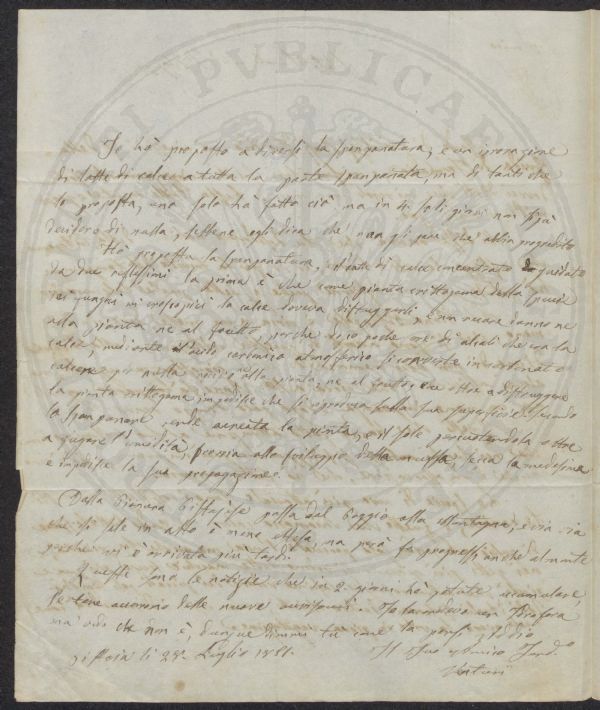 Io hò proposto a diversi la spampanatura, e una irrorazione
di latte di calce a tutta la parte spampanata, ma di tanti che
lo proposta, uno solo ha fatto ciò ma in 4 soli giorni non si può
decidere di nulla, sebbene egli dica che non gli pare che abbia progredito
Hò proposta la spampanatura, il latte di calce concentrato guidato
da due riflessioni la prima è che come pianta crittogama della specie
dei funghi microscopici la calce doveva distruggerli, e non recare danno ne
alla pianta ne al frutto, perche dopo poche ore di alcali che era la
calce, mediante l'acido carbonico atmosferico si converte in carbonato
calcare per nulla nocivo alla pianta, ne al frutto, che oltre a distruggere
la pianta crittogama impedisce che si riproduca sulla sua superficie. secondo
lo spampanare rende aereata la pianta, e il sole percuotendola oltre
a fugare l'umidità, propria allo sviluppo della muffa, secca la medesima
e impedisce la sua propagazione.
Dalla Pianura Pistojese passa dal Poggio alla Montagna, e via via
che si sale in alto è meno estesa, ma però fa progressi anche al monte
perche vi è arrivata più tardi.
Queste sono le notizie che in 2 giorni hò potuto accumulare,
se tene averrano delle nuove
ma vedo che non è, dunque dimmi tu come la pensi addio
Pistoia li 28. Luglio 1851.
Il Tuo Amico